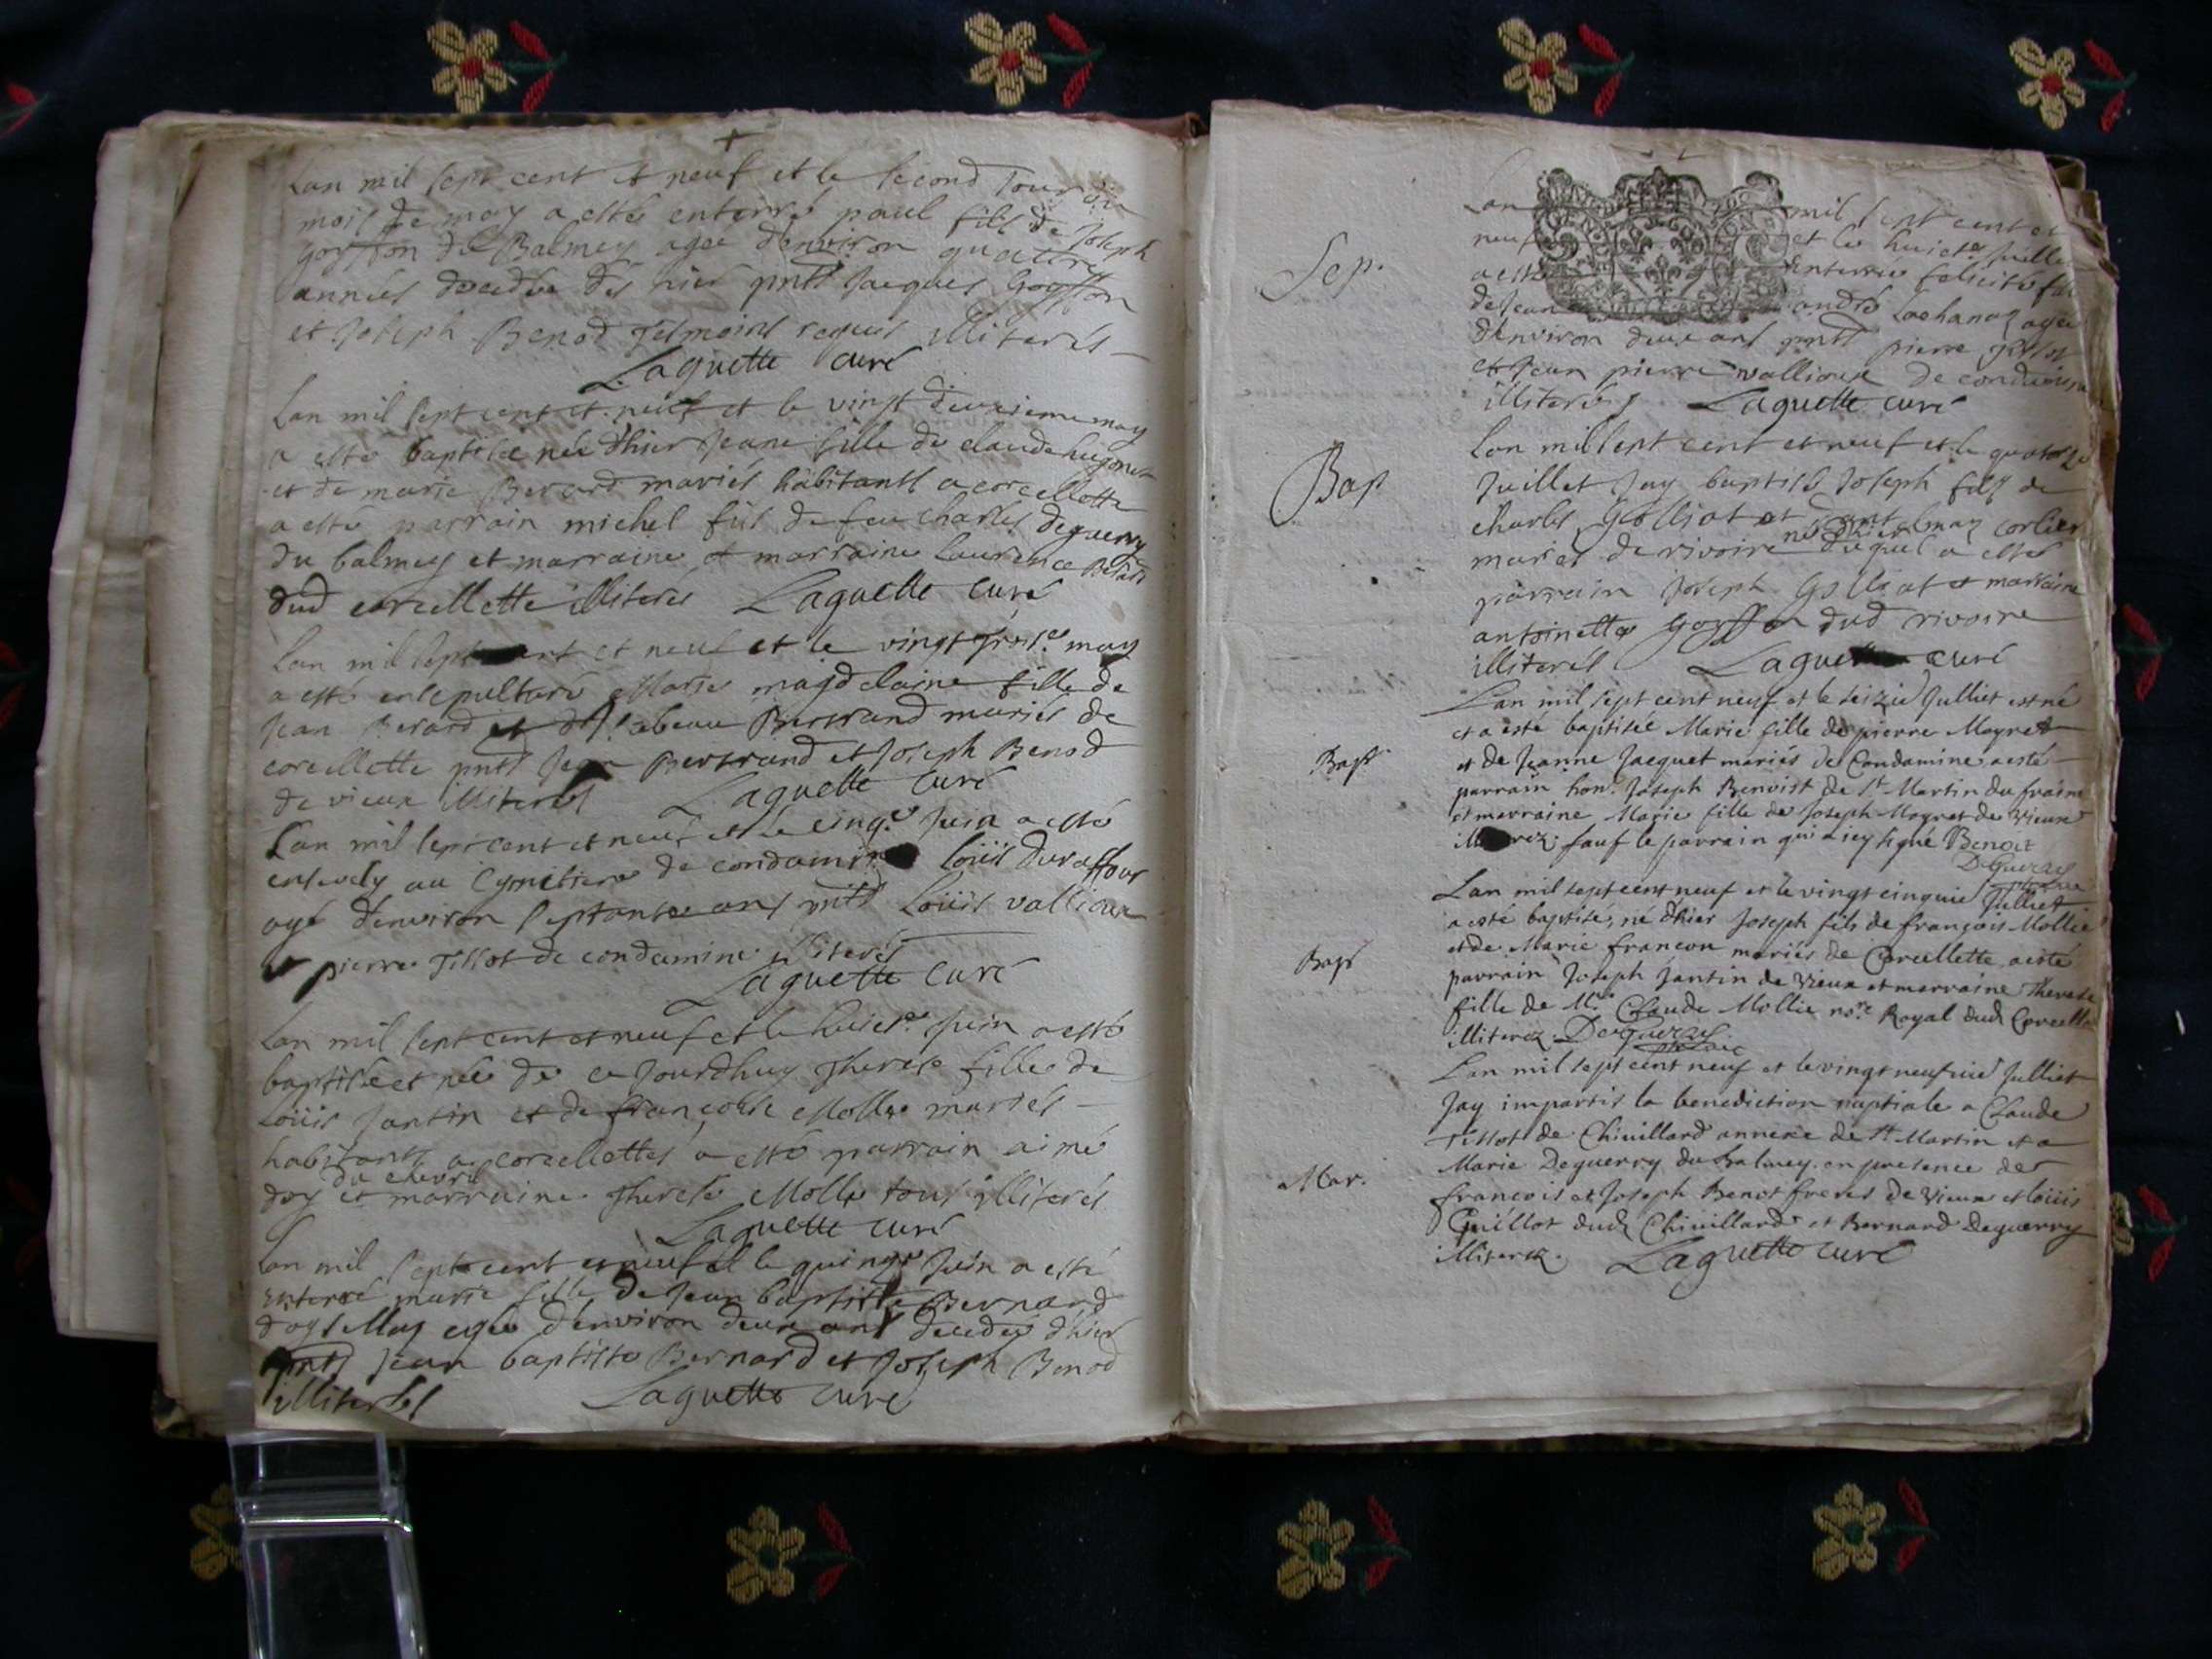 Lan mil sept cent et neuf et le second Jour du
mois de may a esté enterré paul fils de Joseph
goyffon du Balmey agee d'environ quattre
années decedée dés hier pntš Jacques Goyffon
et Joseph Benod tesmoins requis illiterés
Laguette curé
Lan mil sept cent et neuf et le vingt deuxieme may
a esté baptisée née d'hier Jeane fille de claude hugonet
et de marie Berard mariés habitants a corcellette
a esté parrain michel fils de feu charles deguerry
du balmey et marraine et marraine Laurence Berard
dud corcellette illiterés Laguette curé
Lan mil sept cent et neuf et le vingt trois.e may
a esté ensepulturé Marie magdelaine fille de
Jean Berard et d'Isabeau Bertrand mariés de
corcellette pntš Jean Bertrand et Joseph Benod
de vieux illiterés Laguette curé
Lan mil sept cent et neuf et le cinq.e Juin a esté
ensevely au Cymetiere de condamine loüis duraffour
agé d'environ septante ans pntš Loüis vallioux
et pierre Tillot de condamine illiterés
Laguette curé
Lan mil sept cent et neuf et le huict.e Juin a esté
baptisée et née de ce Jourdhuy Therese fille de
Loüis Jantin et de francoise Mollie mariés
habitants a corcellettes a esté parrain aimé
du chevril
doy et marraine Therese Mollie tous illiterés
Laguette curé
Lan mil sept cent et neuf et le quinze Juin a esté
enterré marie fille de Jean baptiste Bernard
agée d'environ deux ans decedée d'hier
pntš Jean baptiste Bernard et Joseph Benod
illiterés Laguette curé
Sep.
Lan mil sept cent et
neuf et le huict.e Juillet
a esté enterrée felicité fille
de Jean andré Lachanaz agée
d'environ deux ans pntš pierre Tillot
et Jean pierre vallioux de condamine
illiterés Laguette curé
Bap
Lan mil sept cent et neuf et le quatorze
Juillet Jay baptisé Joseph fils de
charles Golliot et corlier
né d'hier
mariés de rivoire duquel a esté
parrain Joseph Golliot et marraine
antoinette Goyffon dud rivoire
illiterés Laguette curé
Bapt
Lan mil sept cent neuf et le seizie Julliet est né
et a esté baptisée Marie fille de pierre Moyret
et de Jeanne Jacquet mariés de Condamine a esté
parrain hon. Joseph Benoist de St Martin du fraine
et marraine Marie fille de Joseph Moyret de Vieux
illiterez; sauf le parrain qui a icy signé Benoit
Deguerry
Bapt
Lan mil sept cent neuf et le vingt cinquie Julliet
a esté baptisé, né d'hier Joseph fils de françois Mollie
et de Marie francon mariés de Corcellette a esté
parrain Joseph Jantin de Vieux et marraine Therese
fille de Me Claude Mollie nore Royal dud Corcelle
illiterez. Deguerry
Mar.
Lan mil sept cent neuf et le vingt neufvie Julliet
Jay impartis la benediction nuptiale a Claude
Tillot de Chivillard annexe de St Martin et a
Marie Deguerry du balmey en presence de
francois et Joseph Benot freres de Vieux et loüis
Guillot dud Chivillard et Bernard Deguerry
illiterez. Laguette curé